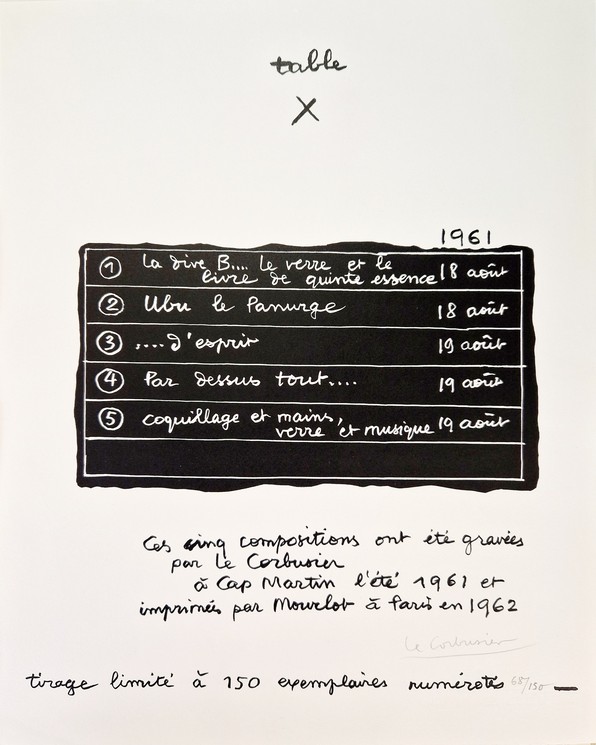 table
X
1961
1 La dive B.... le verre et le
livre de quinte essence 18 août
2 Ubu le Panurge 18 août
3 ....d'esprit 19 août
4 Par dessus tout.... 19 août
5 coquillage et mains,
verre et musique 19 août
Ces cinq compositions ont été gravées
par Le Corbusier
à Cap Martin l'été 1961 et
imprimés par Mourlot à Paris en 1962
Le Corbusier
tirage limité à 150 exemplaires numérotés 68/150 —